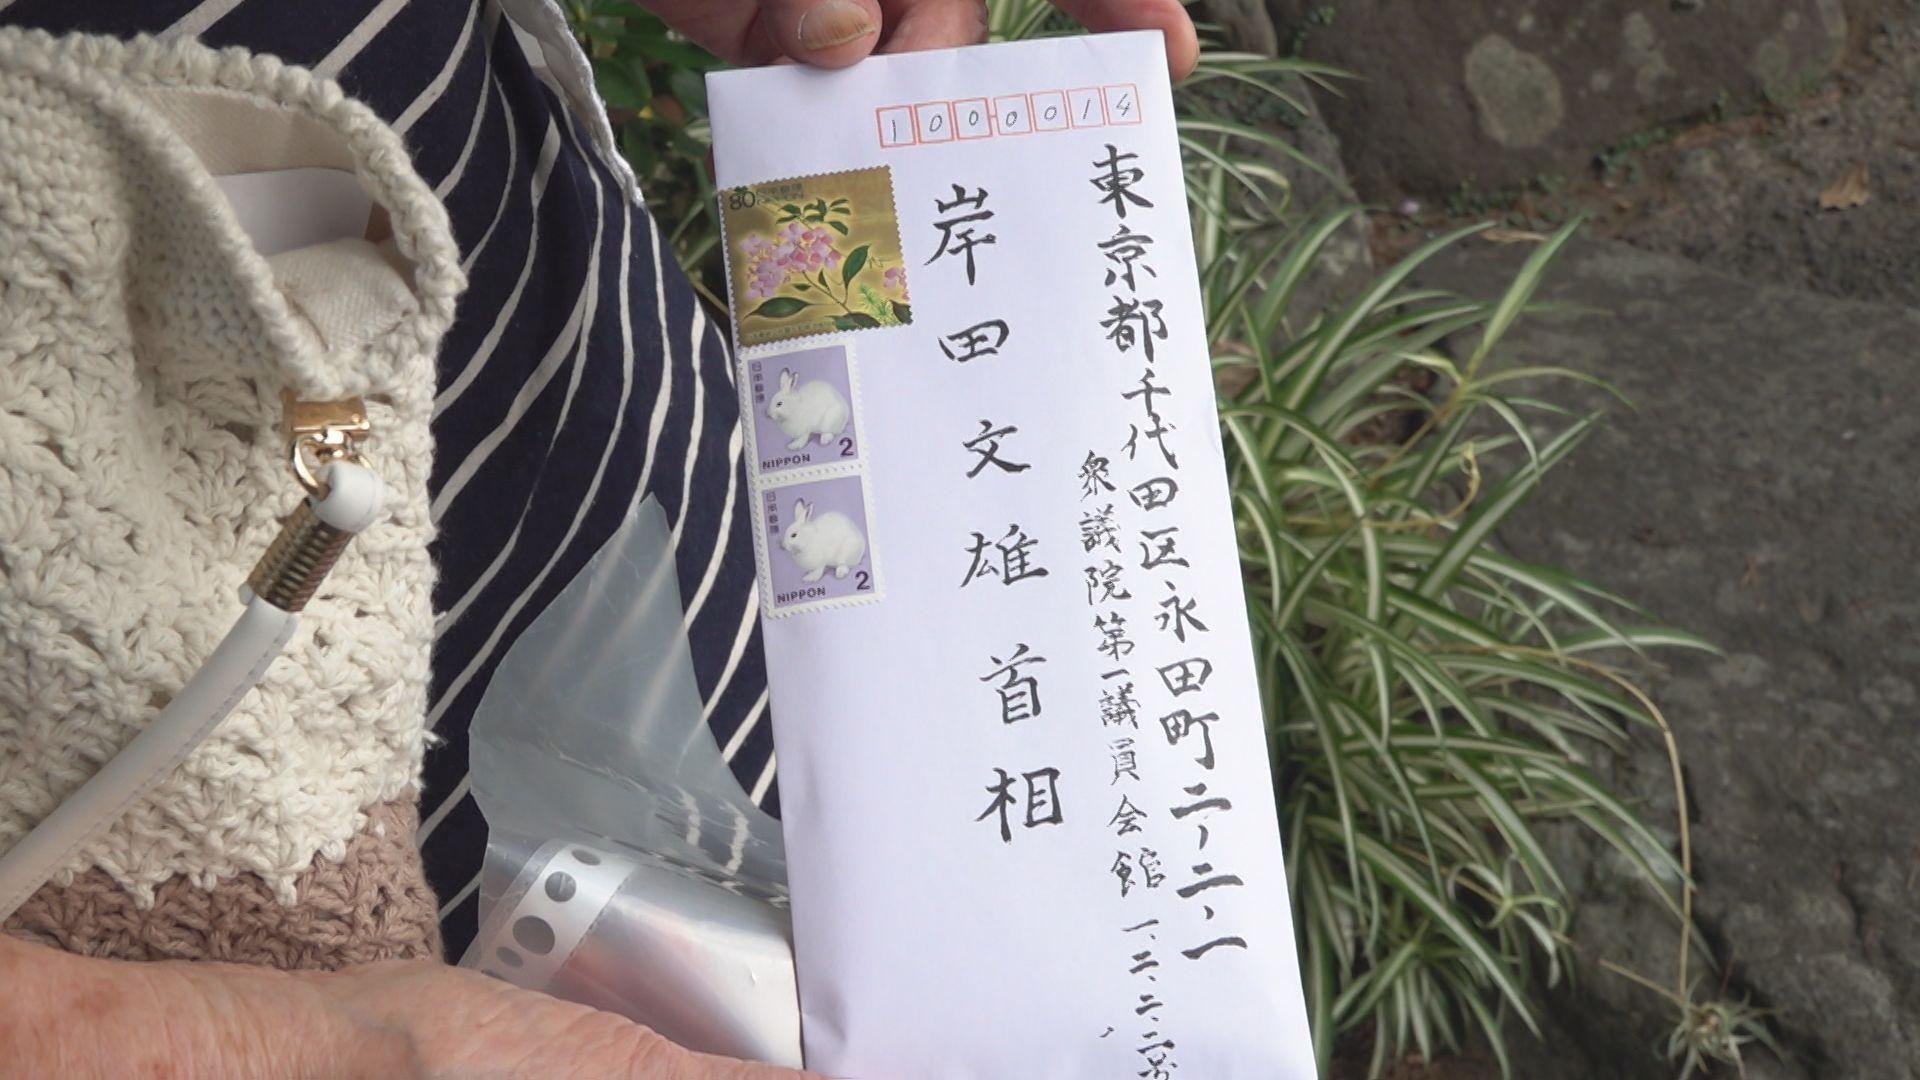 1000014
東京都千代田区永田町二、二、一
衆議院第一議員会館一、二、二、二号
岸田文雄首相
80 日本郵便
NIPPON
日本郵便
2
NIPPON
日本郵便
2
NIPPON